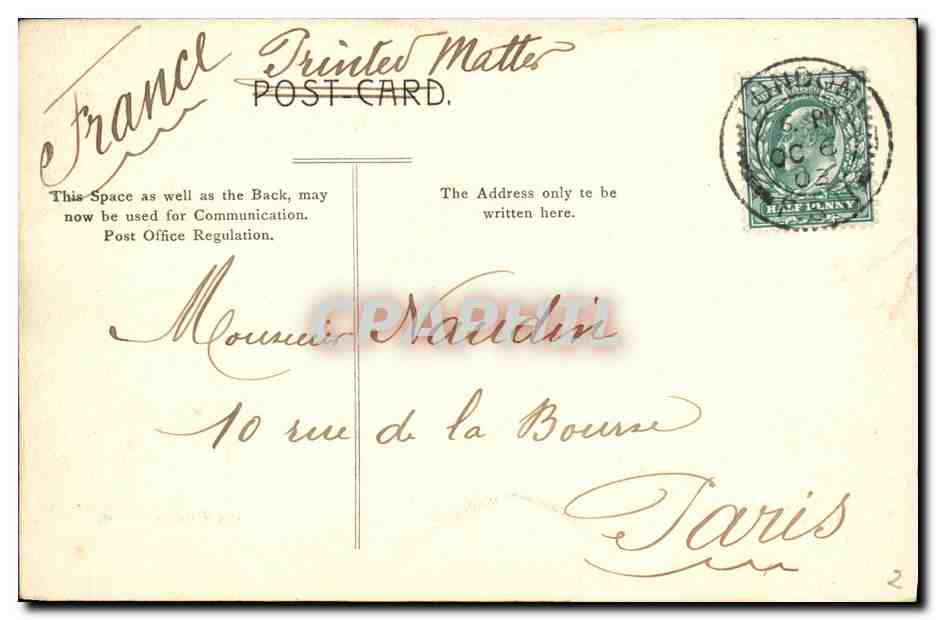 France
Printed Matter
POST-CARD.
This Space as well as the Back, may
now be used for Communication.
Post Office Regulation.
The Address only to be
written here.
PM
OC 6
03
HALFPENNY
Monsieur Naudin
10 rue de la Bourse
Paris
CPAPHIL
2